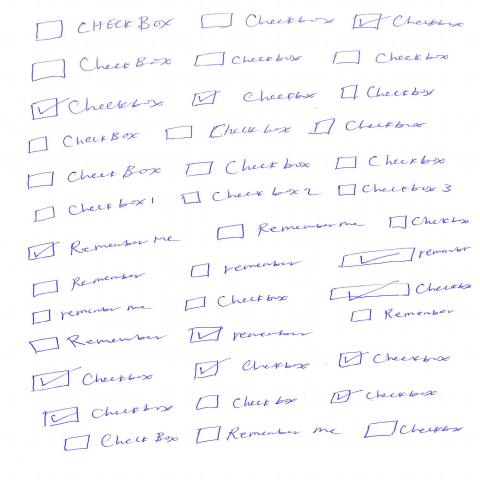 CHECK BOX Checkbox Checkbox
Check Box Checkbox Checkbox
Checkbox Checkbox Checkbox
Check Box Check box Checkbox
Check Box Check box Checkbox
Checkbox 1 Checkbox 2 Checkbox 3
Remember Me Remember me Checkbox
Remember remember remembr
remember me Checkbox Checkbox
Remember remember Remember
Checkbox Checkbox Checkbox
Checkbox Check box Checkbox
Check Box Remember me Checkbox